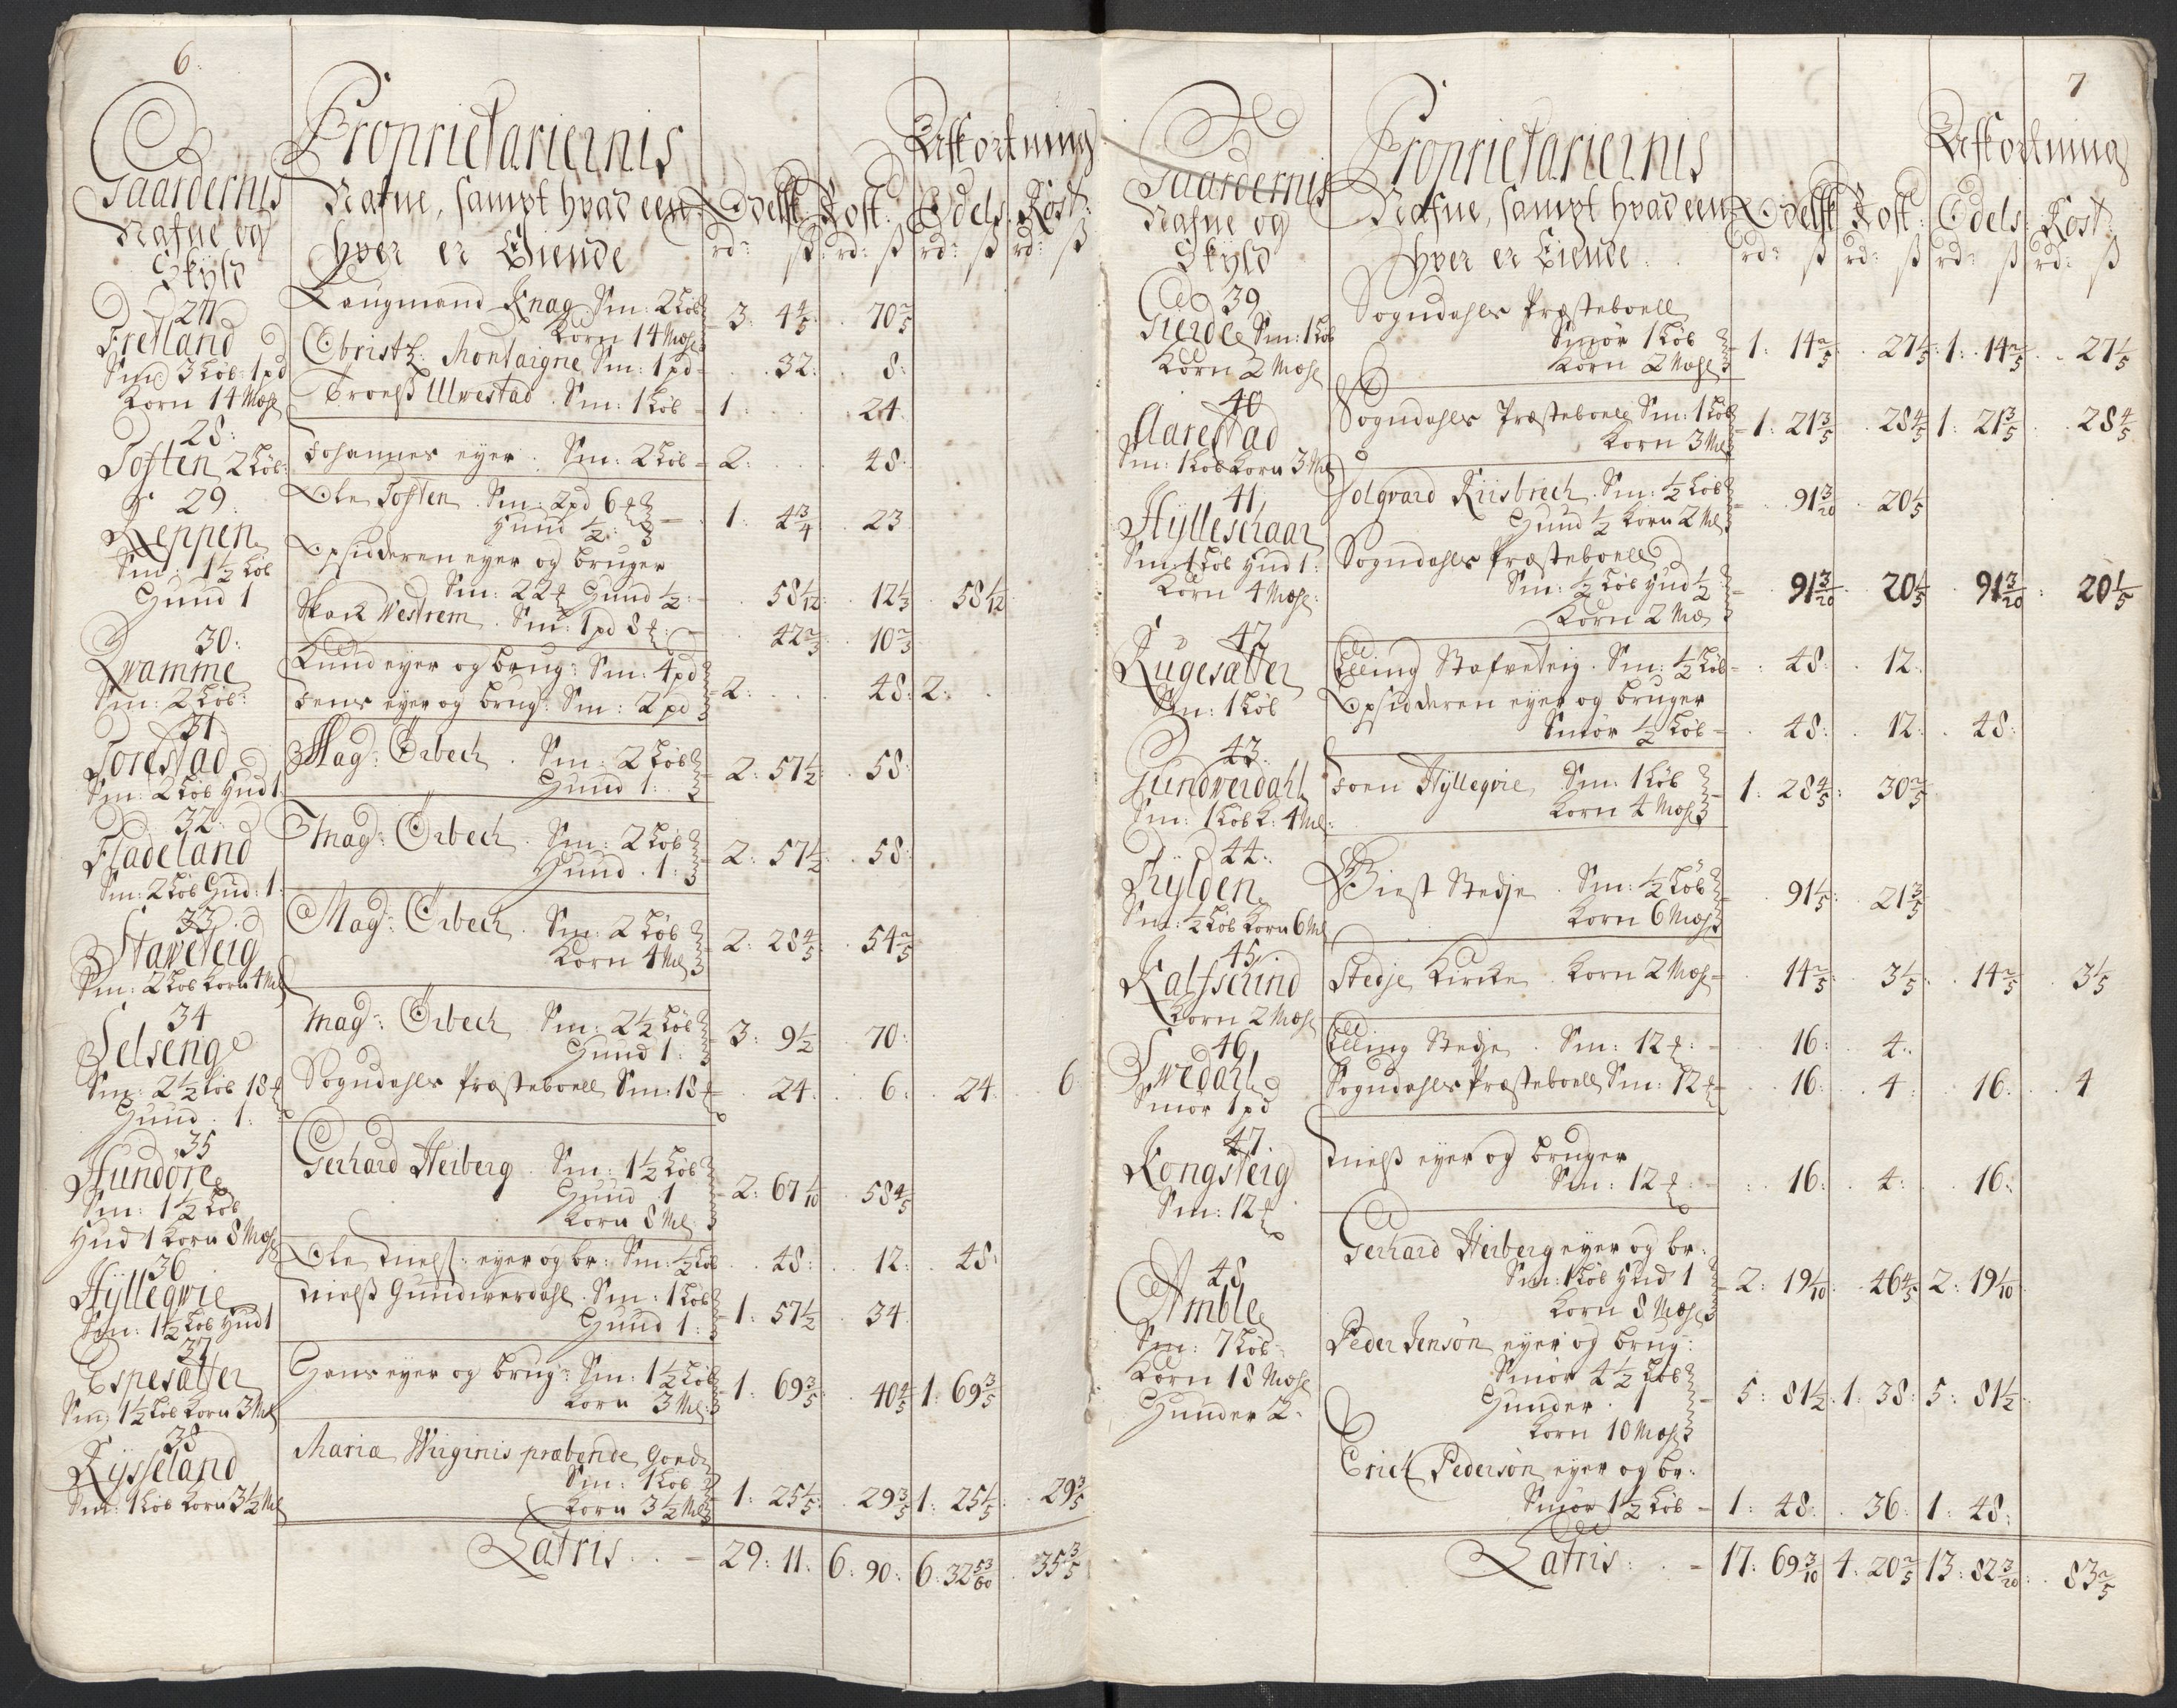 6:
Gaardernis
Nafne og
Skyld
Proprietariernis
Nafne, sampt hvad een
hver er Eiende
Afkortning
Odelsk. Rost: Odels. Rost:
rd: ß: rd: ß rd: ß rd: ß
27
Fretland
Sm: 3 Løb: 1 pd
Korn 14 Mæs
Laugmand Knag Sm: 2 Løb
Korn 14 Mæs 3: 4 4/5 70 2/5
Obristl: Montaigne Sm: 1 pd 32: 8:
Troelß Ulvestad . Sm: 1 Løb 1: 24
28:
Toften 2 Løb:
Johannes eyer . Sm: 2 Løb 2: 48:
29
Reppen
Sm: 1 1/2 Løb
Hund 1
Ole Toften . Sm: 2 pd 6
Hund 1/2: 1: 4 3/4 23
Opsidderen eyer og bruger
Sm: 22 Hund 1/2: 58 1/12 12 1/3 58 1/12
Vestrem . Sm: 1 pd 8 42 2/3 10 2/3
30:
Qvamme
Sm: 2 Løb:
Knud eyer og brug: Sm: 4 pd
Jens eyer og brug: Sm: 2 pd 2: 48: 2:
31
Torestad
Sm: 2 Løb Hud 1:
Mag: Orbech . Sm: 2 Løb
Hund 1: 2: 57 1/2 58:
32:
Fladeland
Sm: 2 Løb Hud: 1
Mag: Orbech . Sm: 2 Løb
Hund . 1: 2: 57 1/2 58:
33
Staweteig
Sm: 2 Løb Korn 4 Ml
Mag: Orbech . Sm: 2 Løb
Korn 4 Ml 2: 28 4/5 54 2/5
34
Selseng
Sm: 2 1/2 Løb 18
Hund . 1:
Mag: Orbech Sm: 2 1/2 Løb
Hund 1: 3: 9 1/2 70:
Sogndahls Præsteboell Sm: 18 24: 6: 24: 6
35
Hundore
Sm: 1 1/2 Løb
Hud 1 Korn 8 Mæs
Gerhard Heiberg . Sm: 1 1/2 Løb
Hund 1
Korn 8 Ml: 2: 67 1/10 58 4/5
36
Hyllegvie
Sm: 1 1/2 Løb Hud 1
Ole Nielß: eyer og br: Sm: 1/2 Løb 48: 12: 48:
Nielß Gundverdahl . Sm: 1 Løb
Hund 1: 1: 57 1/2 34
37
Espesætter
Sm: 1 1/2 Løb Korn 3 Ml
Hans eyer og brug: Sm: 1 1/2 Løb
Korn 3 Ml: 1: 69 3/5 40 4/5 1: 69 3/5
38
Rysseland
Sm: 1 Løb Korn 3 1/2 Ml
Maria Virginis præbende Gods
Sm: 1 Løb
Korn 3 1/2 Ml 1: 25 1/5 29 3/5 1: 25 1/5 29 3/5
Latris . . - 29: 11: 6: 90: 6: 32 53/60 35 3/5
7
Gaardernis
Nafne og
Skyld
Proprietariernis
Nafne, sampt hvad een
hver er Eiende
Afkortning
Odelsk Rost: Odels: Rost:
rd: ß rd: ß rd: ß rd: ß
39
Gierde Sm: 1 Løb
Korn 2 Mæs
Sogndahls Præsteboell
Smør 1 Løb
Korn 2 Mæs 1: 14 2/5 27 1/5 1: 14 2/5 27 1/5
40
Aarestad
Sm: 1 Løb Korn 3 Ml
Sogndahls Præsteboell Sm: 1 Løb
Korn 3 Ml 1: 21 3/5 28 4/5 1: 21 3/5 28 4/5
41
Hylleschaar
Sm: 1 Løb Hud 1:
Korn 4 Mæs:
Riisbrech . Sm: 1/2 Løb
Hund 1/2 Korn 2 Ml 91 3/20 20 1/5
Sogndahls Præsteboell
Sm: 1/2 Løb Hud 1/2
Korn 2 Mæ 91 3/20 20 1/5 91 3/20 20 1/5
42
Rugesatter
Sm: 1 Løb
Elling Stafveteig . Sm: 1/2 Løb 48: 12:
Opsidderen eyer og bruger
Smør 1/2 Løb 48: 12: 48:
43
Gundverdahl
Sm: 1 Løb K: 4 Ml:
Joen Hyllegvie Sm: 1 Løb
Korn 4 Mæs 1: 28 4/5 30 2/5
44:
Kylden
Sm: 1/2 Løb Korn 6 Ml
Stedje . Sm: 1/2 Løb
Korn 6 Mæs 91 1/5 21 3/5
45
Kalfserind
Korn 2 Mæs
Stedje Kirke . Korn 2 Mæs 14 2/5 3 1/5 14 2/5 3 1/5
46
Svedahl
Smør 1 pd
Elling Stedje . Sm: 12 16: 4:
Sogndahls Præsteboell Sm: 12 16: 4: 16: 4
47
Kongsteig
Sm: 12
Nielß eyer og bruger
Sm: 12 16: 4: 16:
48
Amble
Sm: 7 Løb
Korn 18 Mæs
Hunder 2:
Gerhard Heiberg eyer og br:
Sm: 1 Løb Hud 1
Korn 8 Mæs 2: 19 1/10 46 4/5 2: 19 1/10
Peder Jensøn eyer og brug:
Smør 4 1/2 Løb
Hunder . 1
Korn 10 Mæs 5: 81 1/2 1: 38: 5: 81 1/2
Erich Pedersøn eyer og br:
Smør 1 1/2 Løb 1: 48: 36: 1: 48:
Latris: . . - 17: 69 3/10 4: 20 2/5 13: 82 3/20 83 2/5